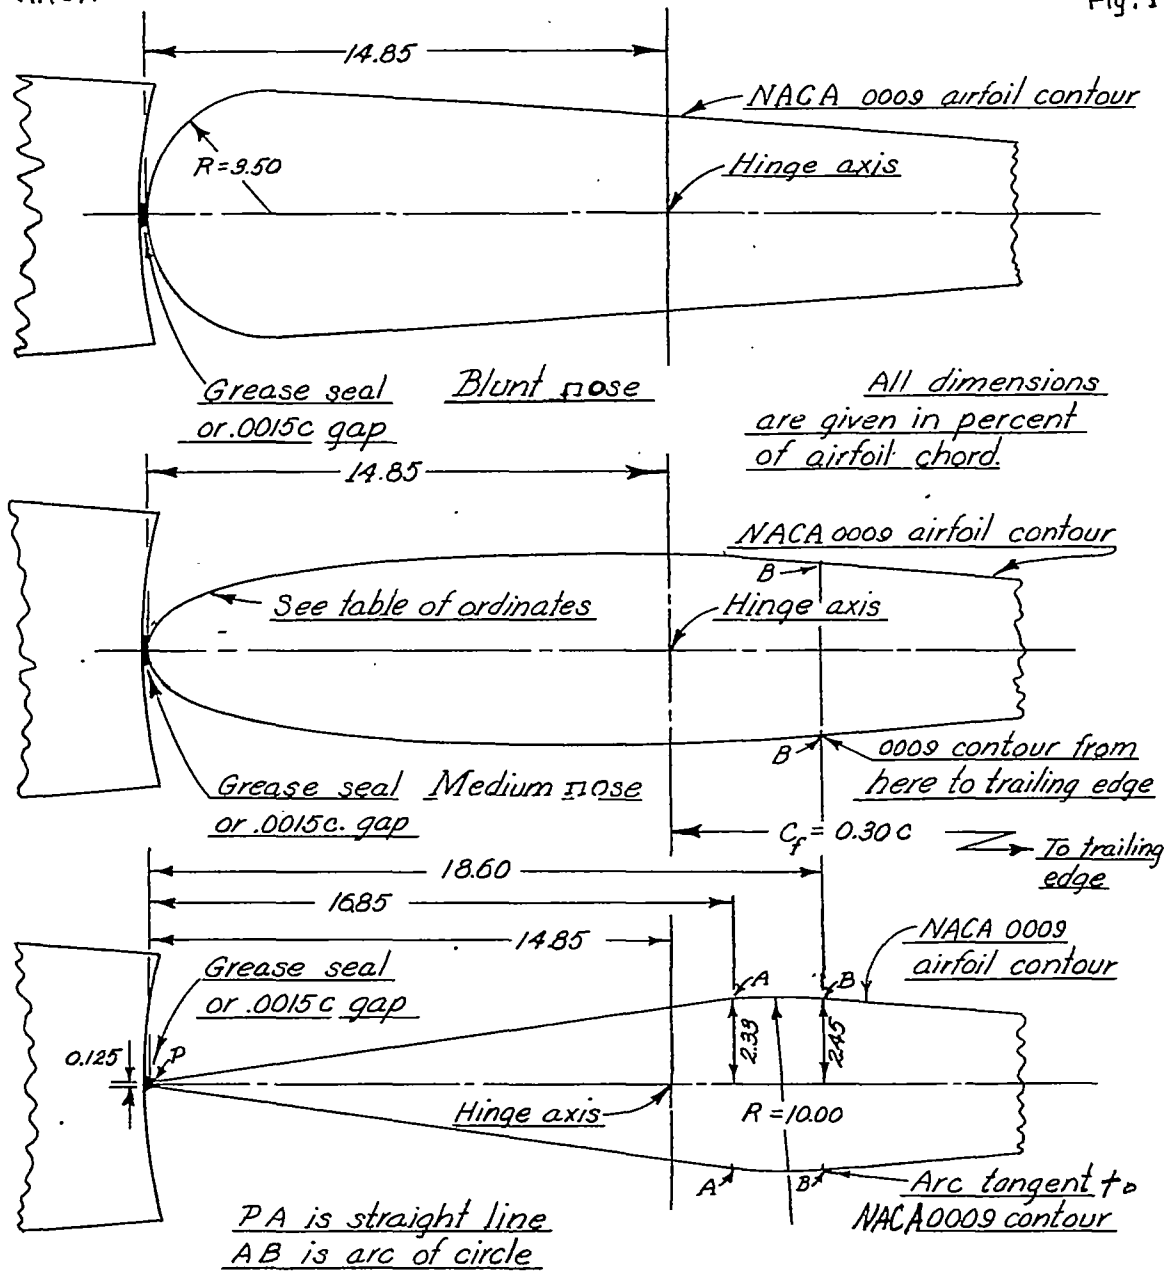 Fig. 1
14.85
NACA 0009 airfoil contour
R=3.50
Hinge axis
Grease seal
or .0015c gap
Blunt nose
All dimensions
are given in percent
of airfoil chord.
14.85
NACA 0009 airfoil contour
B
See table of ordinates
Hinge axis
B
0009 contour from
here to trailing edge
Grease seal
or .0015c. gap
Medium nose
Cf = 0.30c
To trailing
edge
18.60
16.85
14.85
NACA 0009
airfoil contour
Grease seal
or .0015c gap
A
B
0.125
P
2.39
2.45
Hinge axis
R=10.00
A
B
Arc tangent to
NACA 0009 contour
PA is straight line
AB is arc of circle